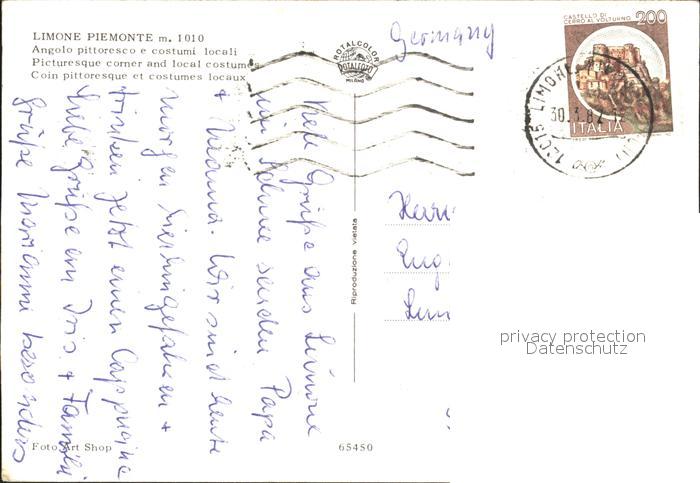 LIMONE PIEMONTE m. 1010
Angolo pittoresco e costumi locali
Picturesque corner and local costumes
Coin pittoresque et costumes locaux
ROTALCOLOR
ROTALFOTO
MILANO
Germany
CASTELLO DI
CERRO AL VOLTURNO
200
ITALIA
30.3.82
Viele Grüße aus Limone
senden Papa
+ Mama. Wir sind heute
morgen hierhingefahren +
trinken jetzt einen Cappucino
Liebe Grüße an Iris + Familie
Grüße Marianni besonders
Riproduzione vietata
Foto Art Shop
65450
privacy protection
Datenschutz